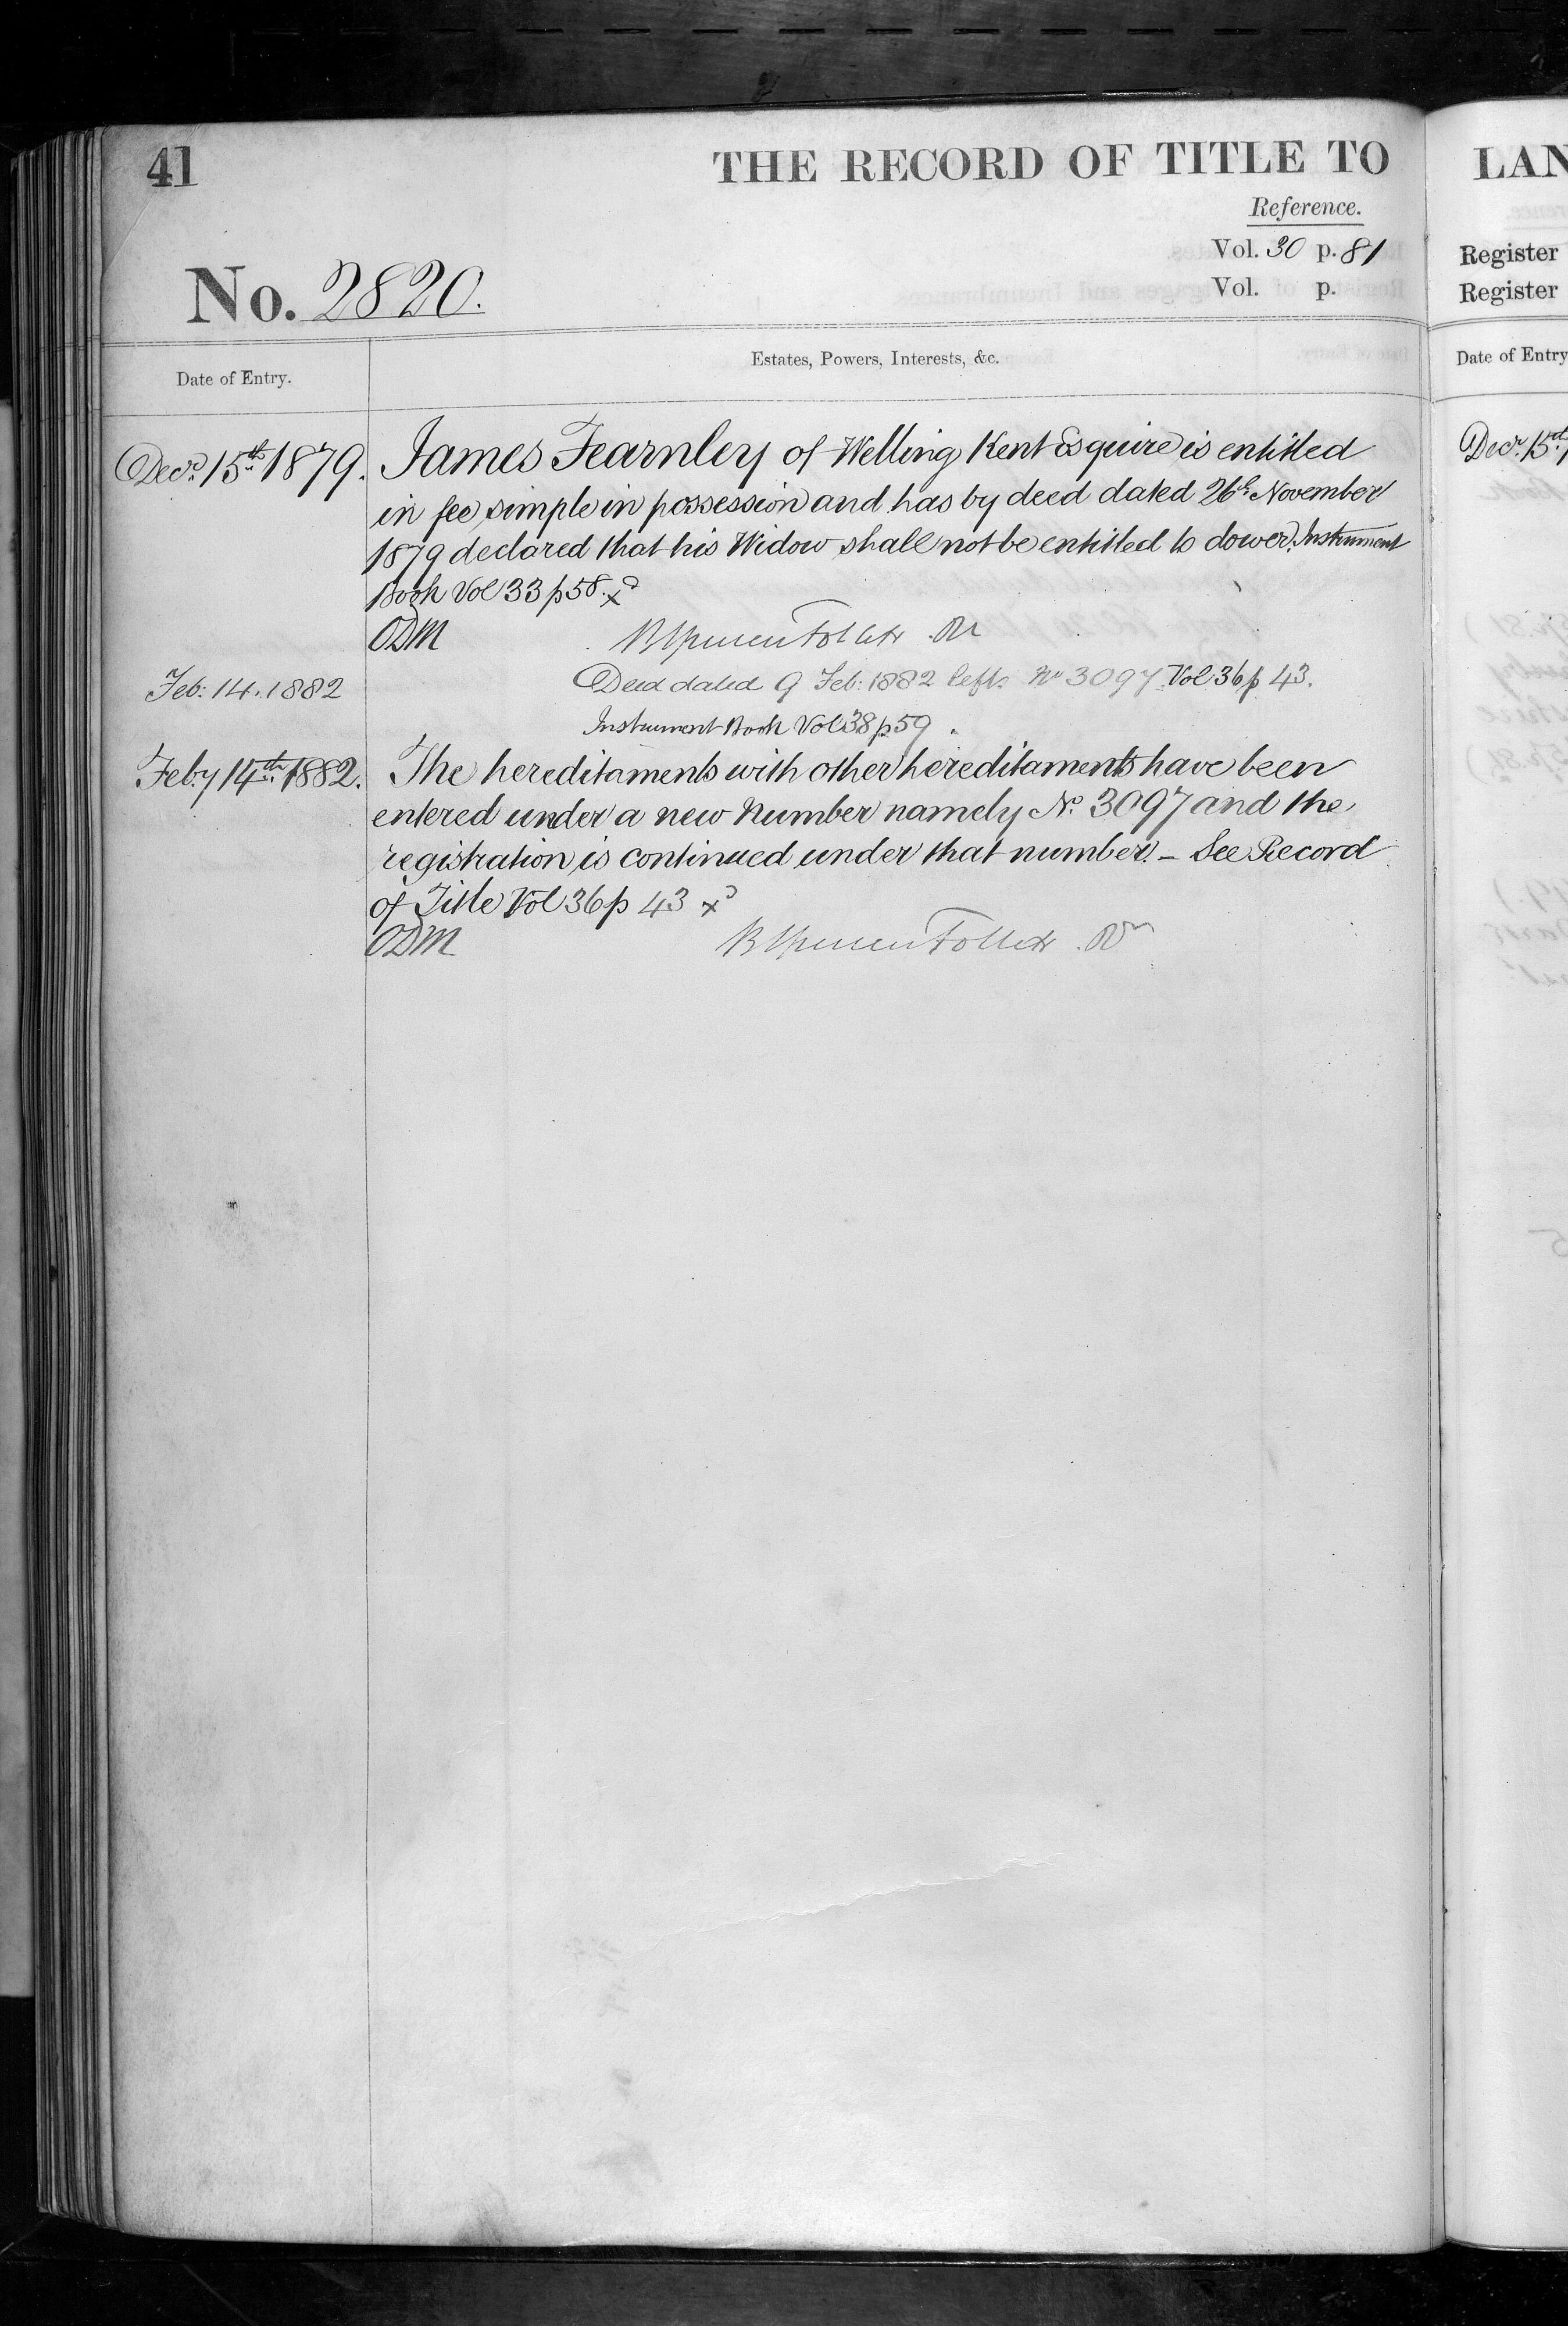 41
THE RECORD OF TITLE TO
Reference.
Vol. 30 p. 81
Vol. p.
No. 2820.
Date of Entry.
Estates, Powers, Interests, &c.
Decr. 15th 1879. James Fearnley of Welling Kent Esquire is entitled
in fee simple in possession and has by deed dated 26th November
1879 declared that his Widow shall not be entitled to dower. Instrument
Book Vol 33 p 58. xd
ODM
Feb: 14. 1882 Deed dated 9 Feb: 1882 left. No 3097 Vol 36 p 43.
Instrument Book Vol 38 p 59.
Feby 14th 1882. The hereditaments with other hereditaments have been
entered under a new Number namely No. 3097 and the
registration is continued under that number. – See Record
of Title Vol 36 p 43 xd
ODM
LAN
Register
Register
Date of Entry
Decr. 15th